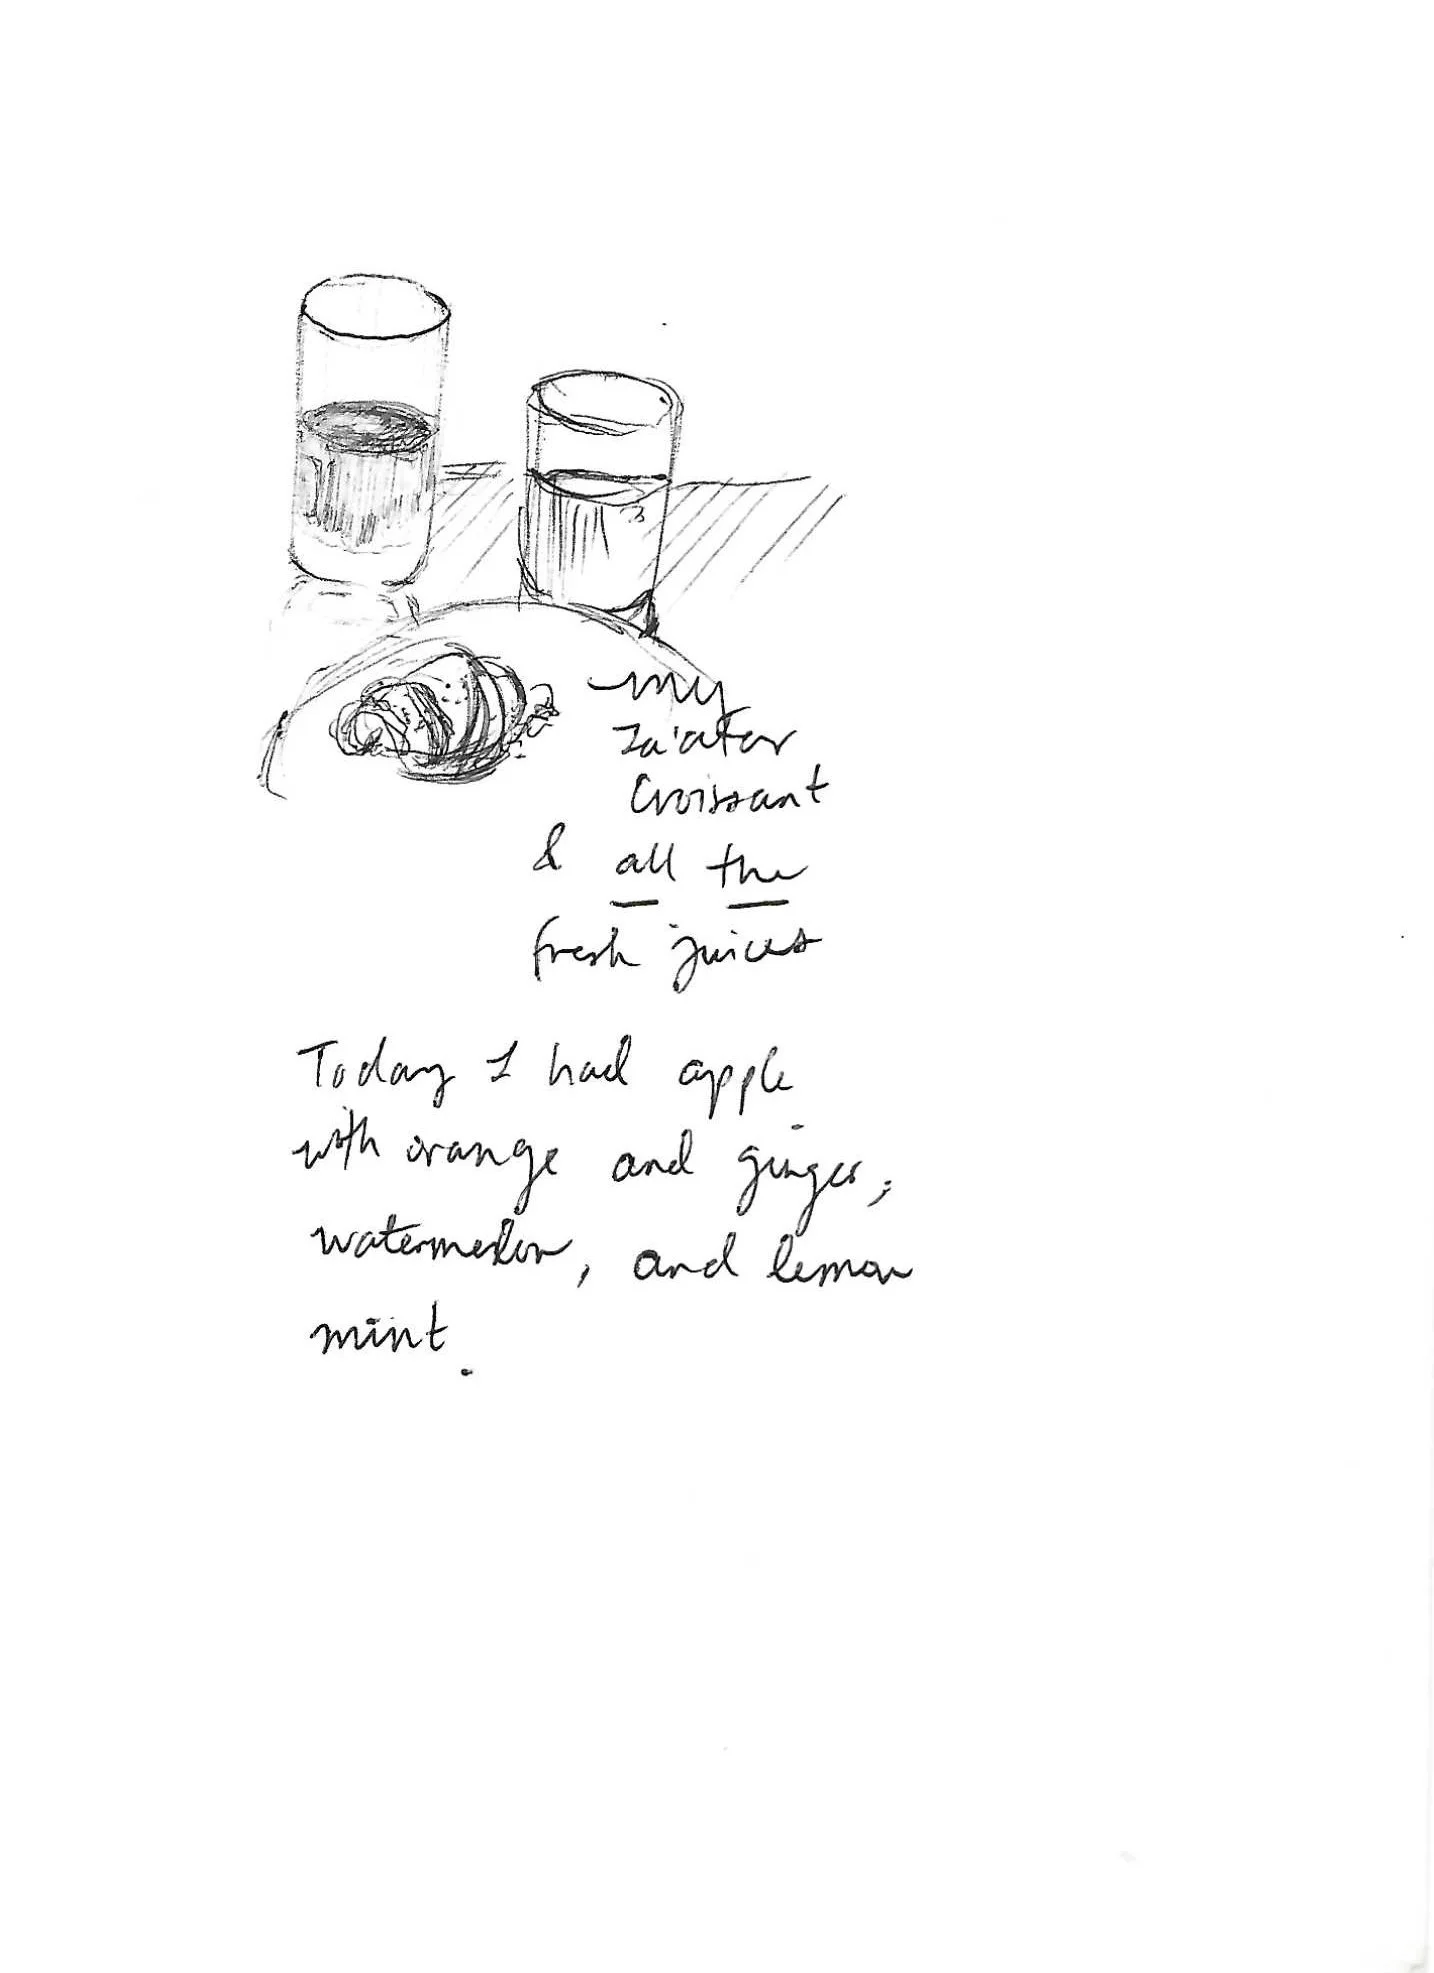 my
Za'atar
Croissant
& all the
fresh juices
Today I had apple
with orange and ginger,
watermelon, and lemon
mint.